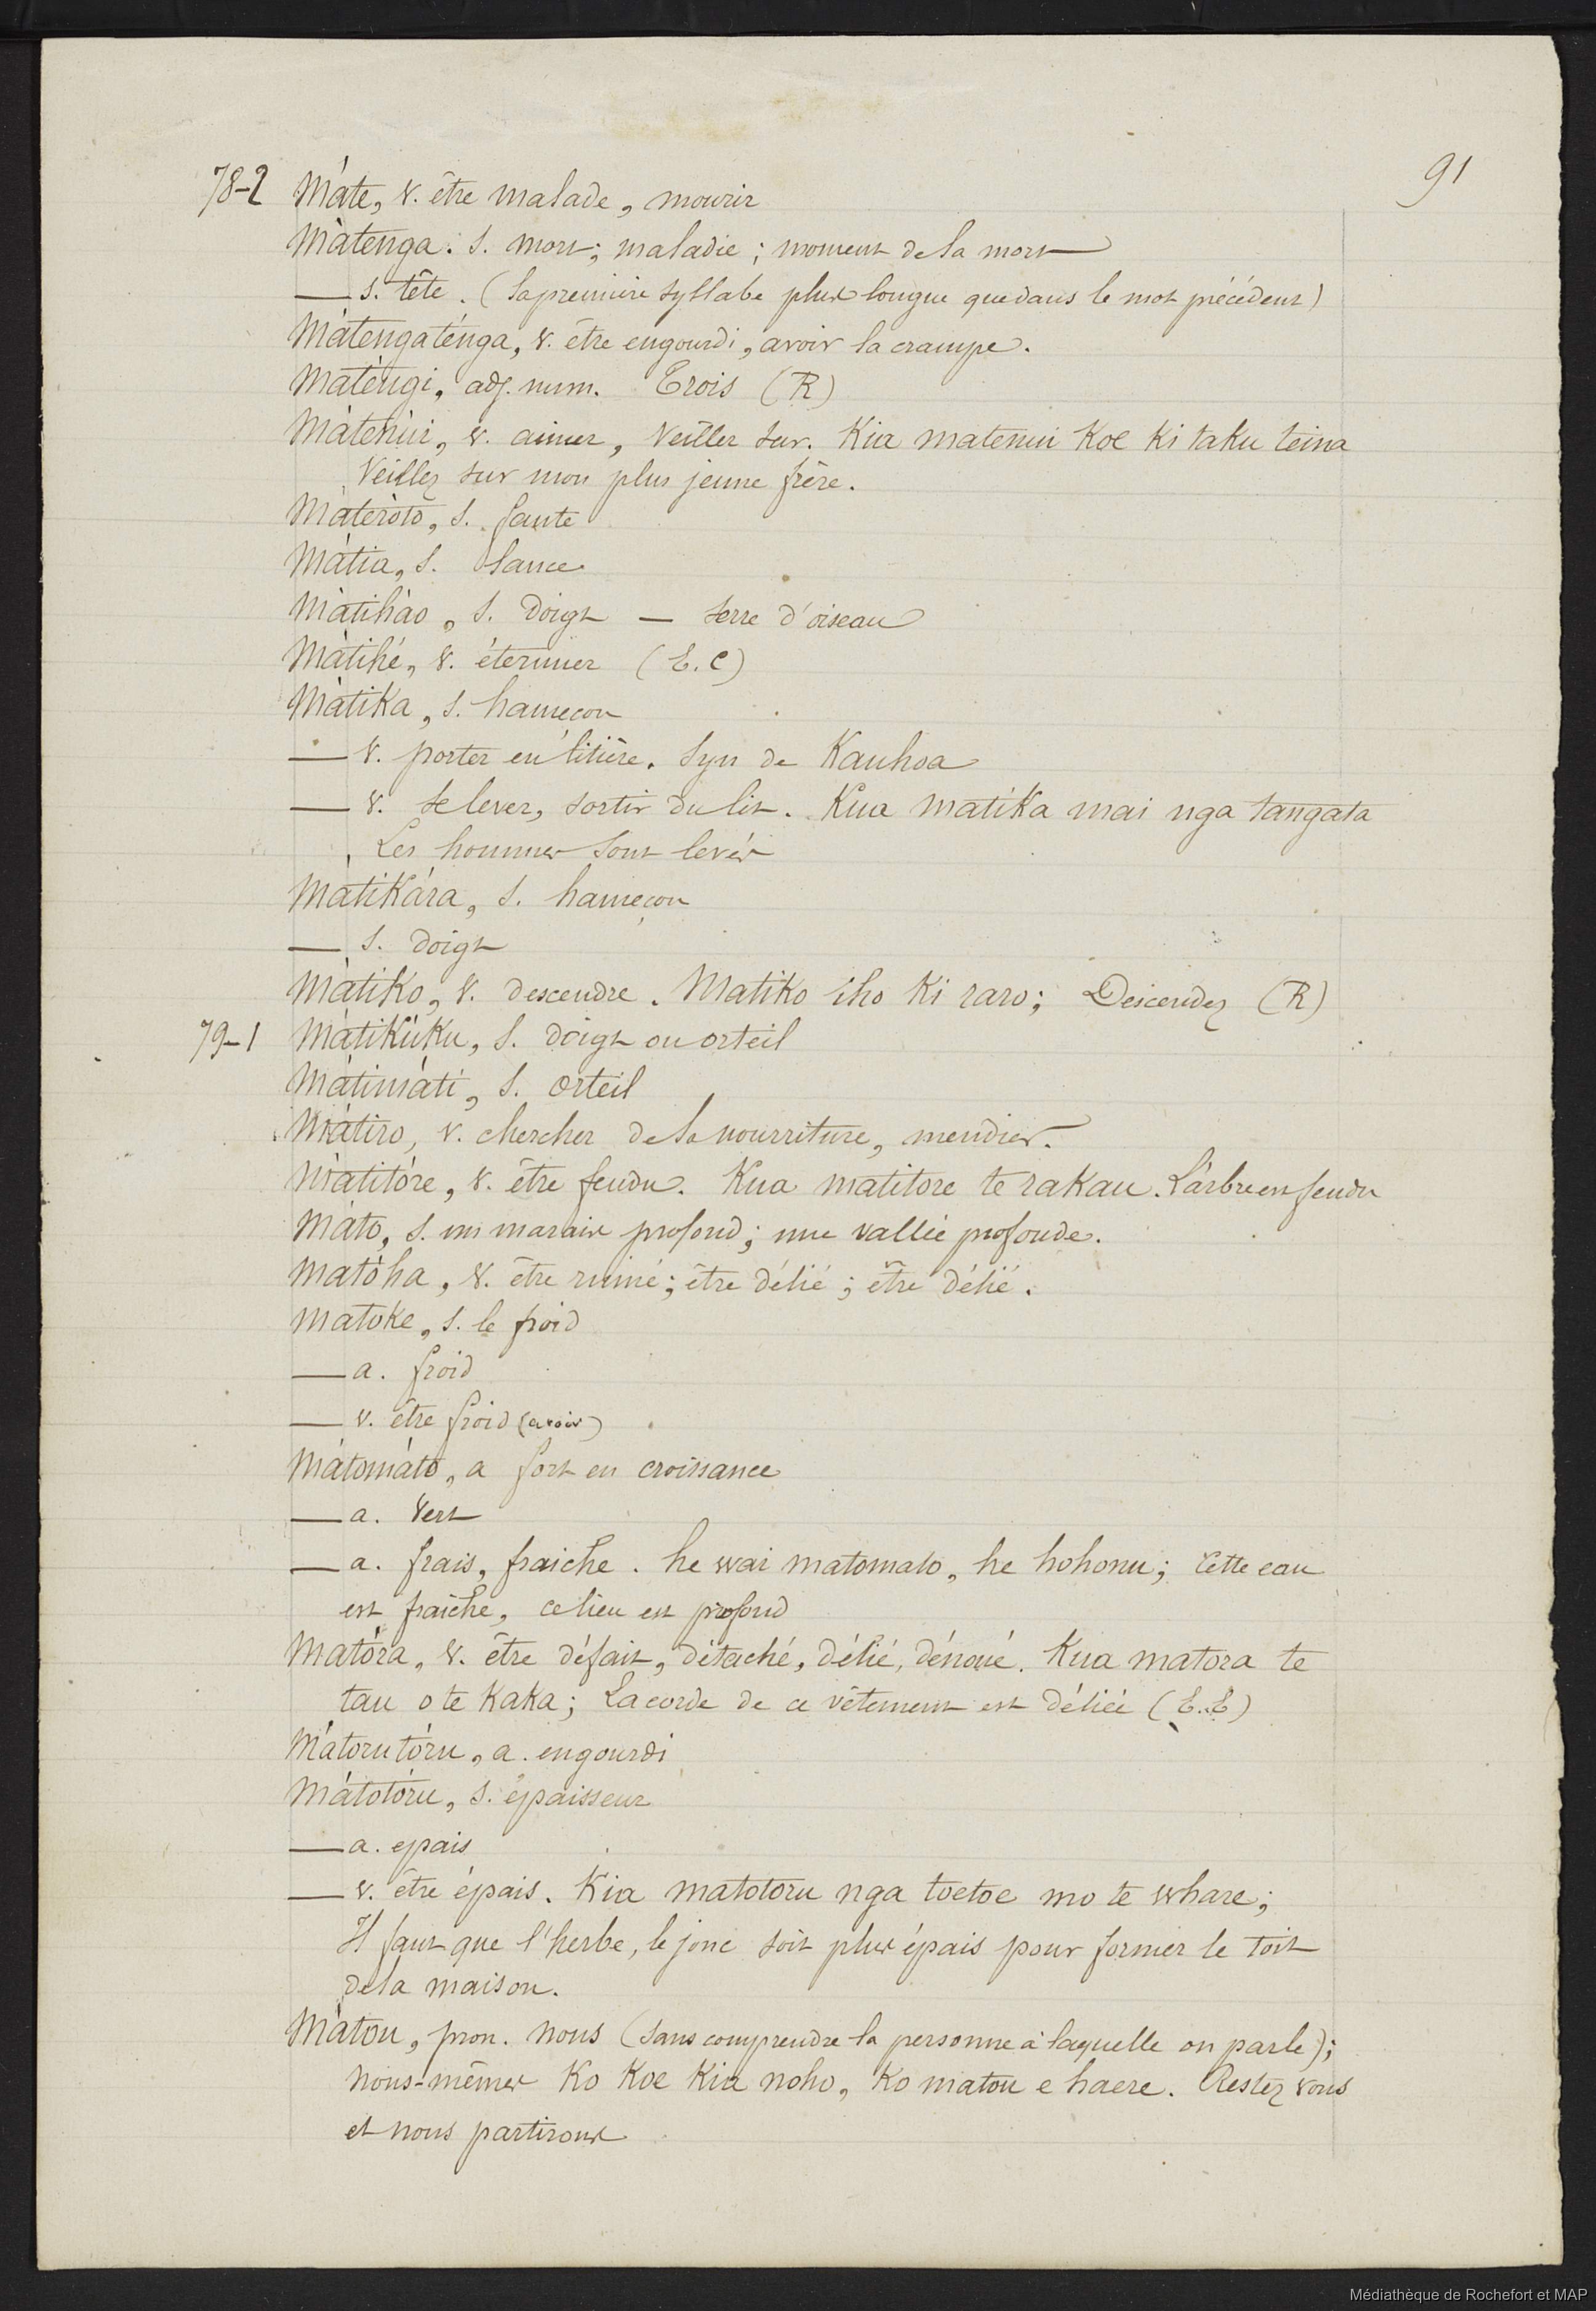 91
78-2 Máte, v. être malade, mourir
Màtenga. s. mort; maladie; moment de la mort
— s. tête. (la première syllabe plus longue que dans le mot précédent)
Màtengaténga, v. être engourdi, avoir la crampe.
Matèngi, adj. num. Trois (R)
Màtenùi, v. aimer, veiller sur. Kia matenui Koe Ki taku teina
Veillez sur mon plus jeune frère.
Màteròto, s. fante
Màtia, s. lance
Màtihào, s. doigt — serre d'oiseau
Màtihé, v. éternuer (E.C)
Màtika, s. hameçon
— v. porter en litière. Syn de Kauhoa
— v. se lever, sortir du lit. Kua matika mai nga tangata
Les hommes sont levés
Matikára, s. hameçon
— s. doigt
Màtiko, v. descendre. Matiko iho Ki raro; Descendez (R)
79-1 Màtikùku, s. doigt ou orteil
Màtimàti, s. orteil
Màtiro, v. chercher de la nourriture, mendier.
Màtitóre, v. être fendu. Kua matitore te rakau. L'arbre est fendu
Màto, s. un marais profond; une vallée profonde.
Matòha, v. être ruiné; être délié; être délié.
Matoke, s. le froid
— a. froid
— v. être froid (avoir)
Màtomàto, a fort en croissance
— a. vert
— a. frais, fraiche. he wai matomato, he hohonu; Cette eau
est fraîche, ce lieu est profond
Matóra, v. être défait, détaché, délié, dénoué. Kua matora te
tau o te Kaka; La corde de ce vêtement est déliée (E.E)
Màtorutóru, a. engourdi
Màtotóru, s. épaisseur
— a. epais
— v. être épais. Kia matotoru nga toetoe mo te whare;
Il faut que l'herbe, le jonc soit plus épais pour former le toit
de la maison.
Màtou, pron. nous (sans comprendre la personne à laquelle on parle);
nous-mêmes Ko Koe Kia noho, Ko matou e haere. Restez vous
et nous partirons
Médiathèque de Rochefort et MAP